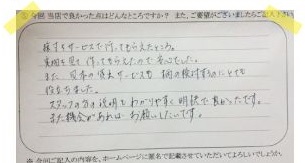 今回 当店で良かった点はどんなところですか? また、ご要望がございましたらご記入下さい
様子をサービスで作ってもらえたところ。
実物を見て作ってもらえたので安心でした。
また、見本の貸出サービスも 柄の検討するのにとても
役立ちました。
スタッフの方の説明もわかりやすく明確で良かったです。
また機会があれば お願いしたいです。
※今回ご記入の内容を、ホームページに匿名で記載させていただいてよろしいでしょうか。